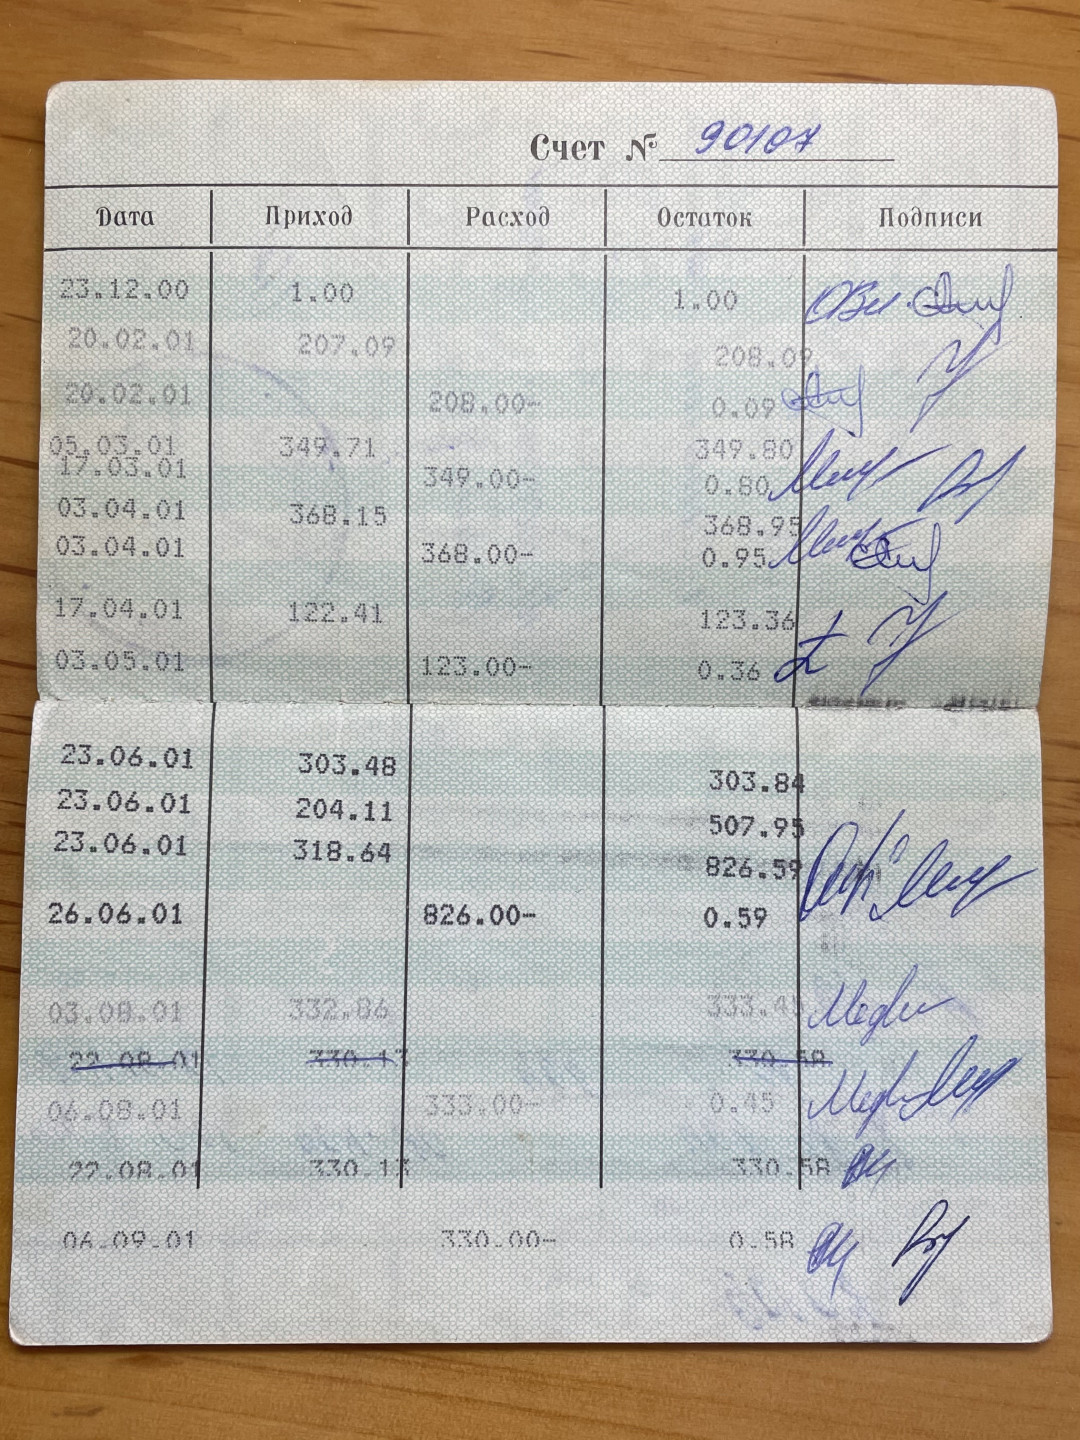 Счет № 90107
Дата Приход Расход Остаток Подписи
23.12.00 1.00 1.00
20.02.01 207.09 208.09
20.02.01 208.00- 0.09
05.03.01 349.71 349.80
17.03.01 349.00- 0.80
03.04.01 368.15 368.95
03.04.01 368.00- 0.95
17.04.01 122.41 123.36
03.05.01 123.00- 0.36
23.06.01 303.48 303.84
23.06.01 204.11 507.95
23.06.01 318.64 826.59
26.06.01 826.00- 0.59
03.08.01 332.86 333.45
22.08.01 330.13 330.58
06.08.01 333.00- 0.45
22.08.01 330.13 330.58
06.09.01 330.00- 0.58